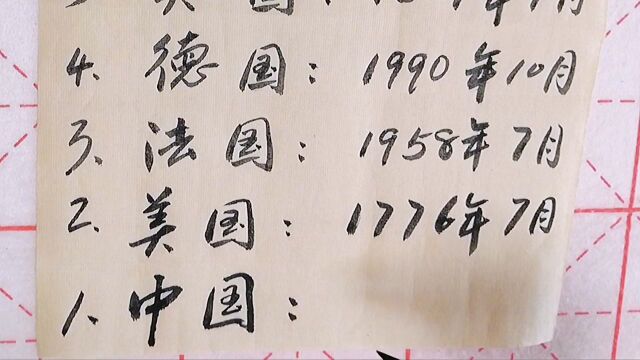 4、德国：1990年10月
3、法国：1958年7月
2、美国：1776年7月
1、中国：